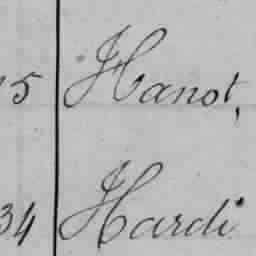 5 Hanot,
34 Hardi